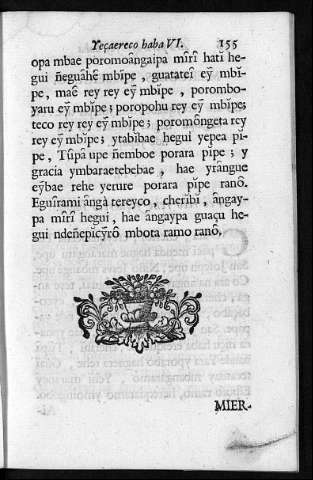 Yeçaereco haba VI. 155
opa mbae poromoângaipà mîrî hatĭ he-
gui ñeguâhẽ mbĭpe, guatateĩ eỹ mbĭ-
pe, maẽ rey rey eỹ mbĭpe, porombo-
yaru eỹ mbĭpe; poropohu rey eỹ mbĭpe;
teco rey rey eỹ mbĭpe; poromôngeta rey
rey eỹ mbĭpe; ytabĭbae hegui yepea pĭ-
pe, Tũpâ upe ñemboe porara pĭpe; y
gracia ymbaraetebebae, hae yrângue
eỹbae rehe yerure porara pĭpe ranô.
Eguĭrami ângà tereyco, cherĭbĭ, ângay-
pa mîrî hegui, hae ângaypa guaçu he-
gui ndeñepĭcỹrô mbota ramo ranô.
MIER-